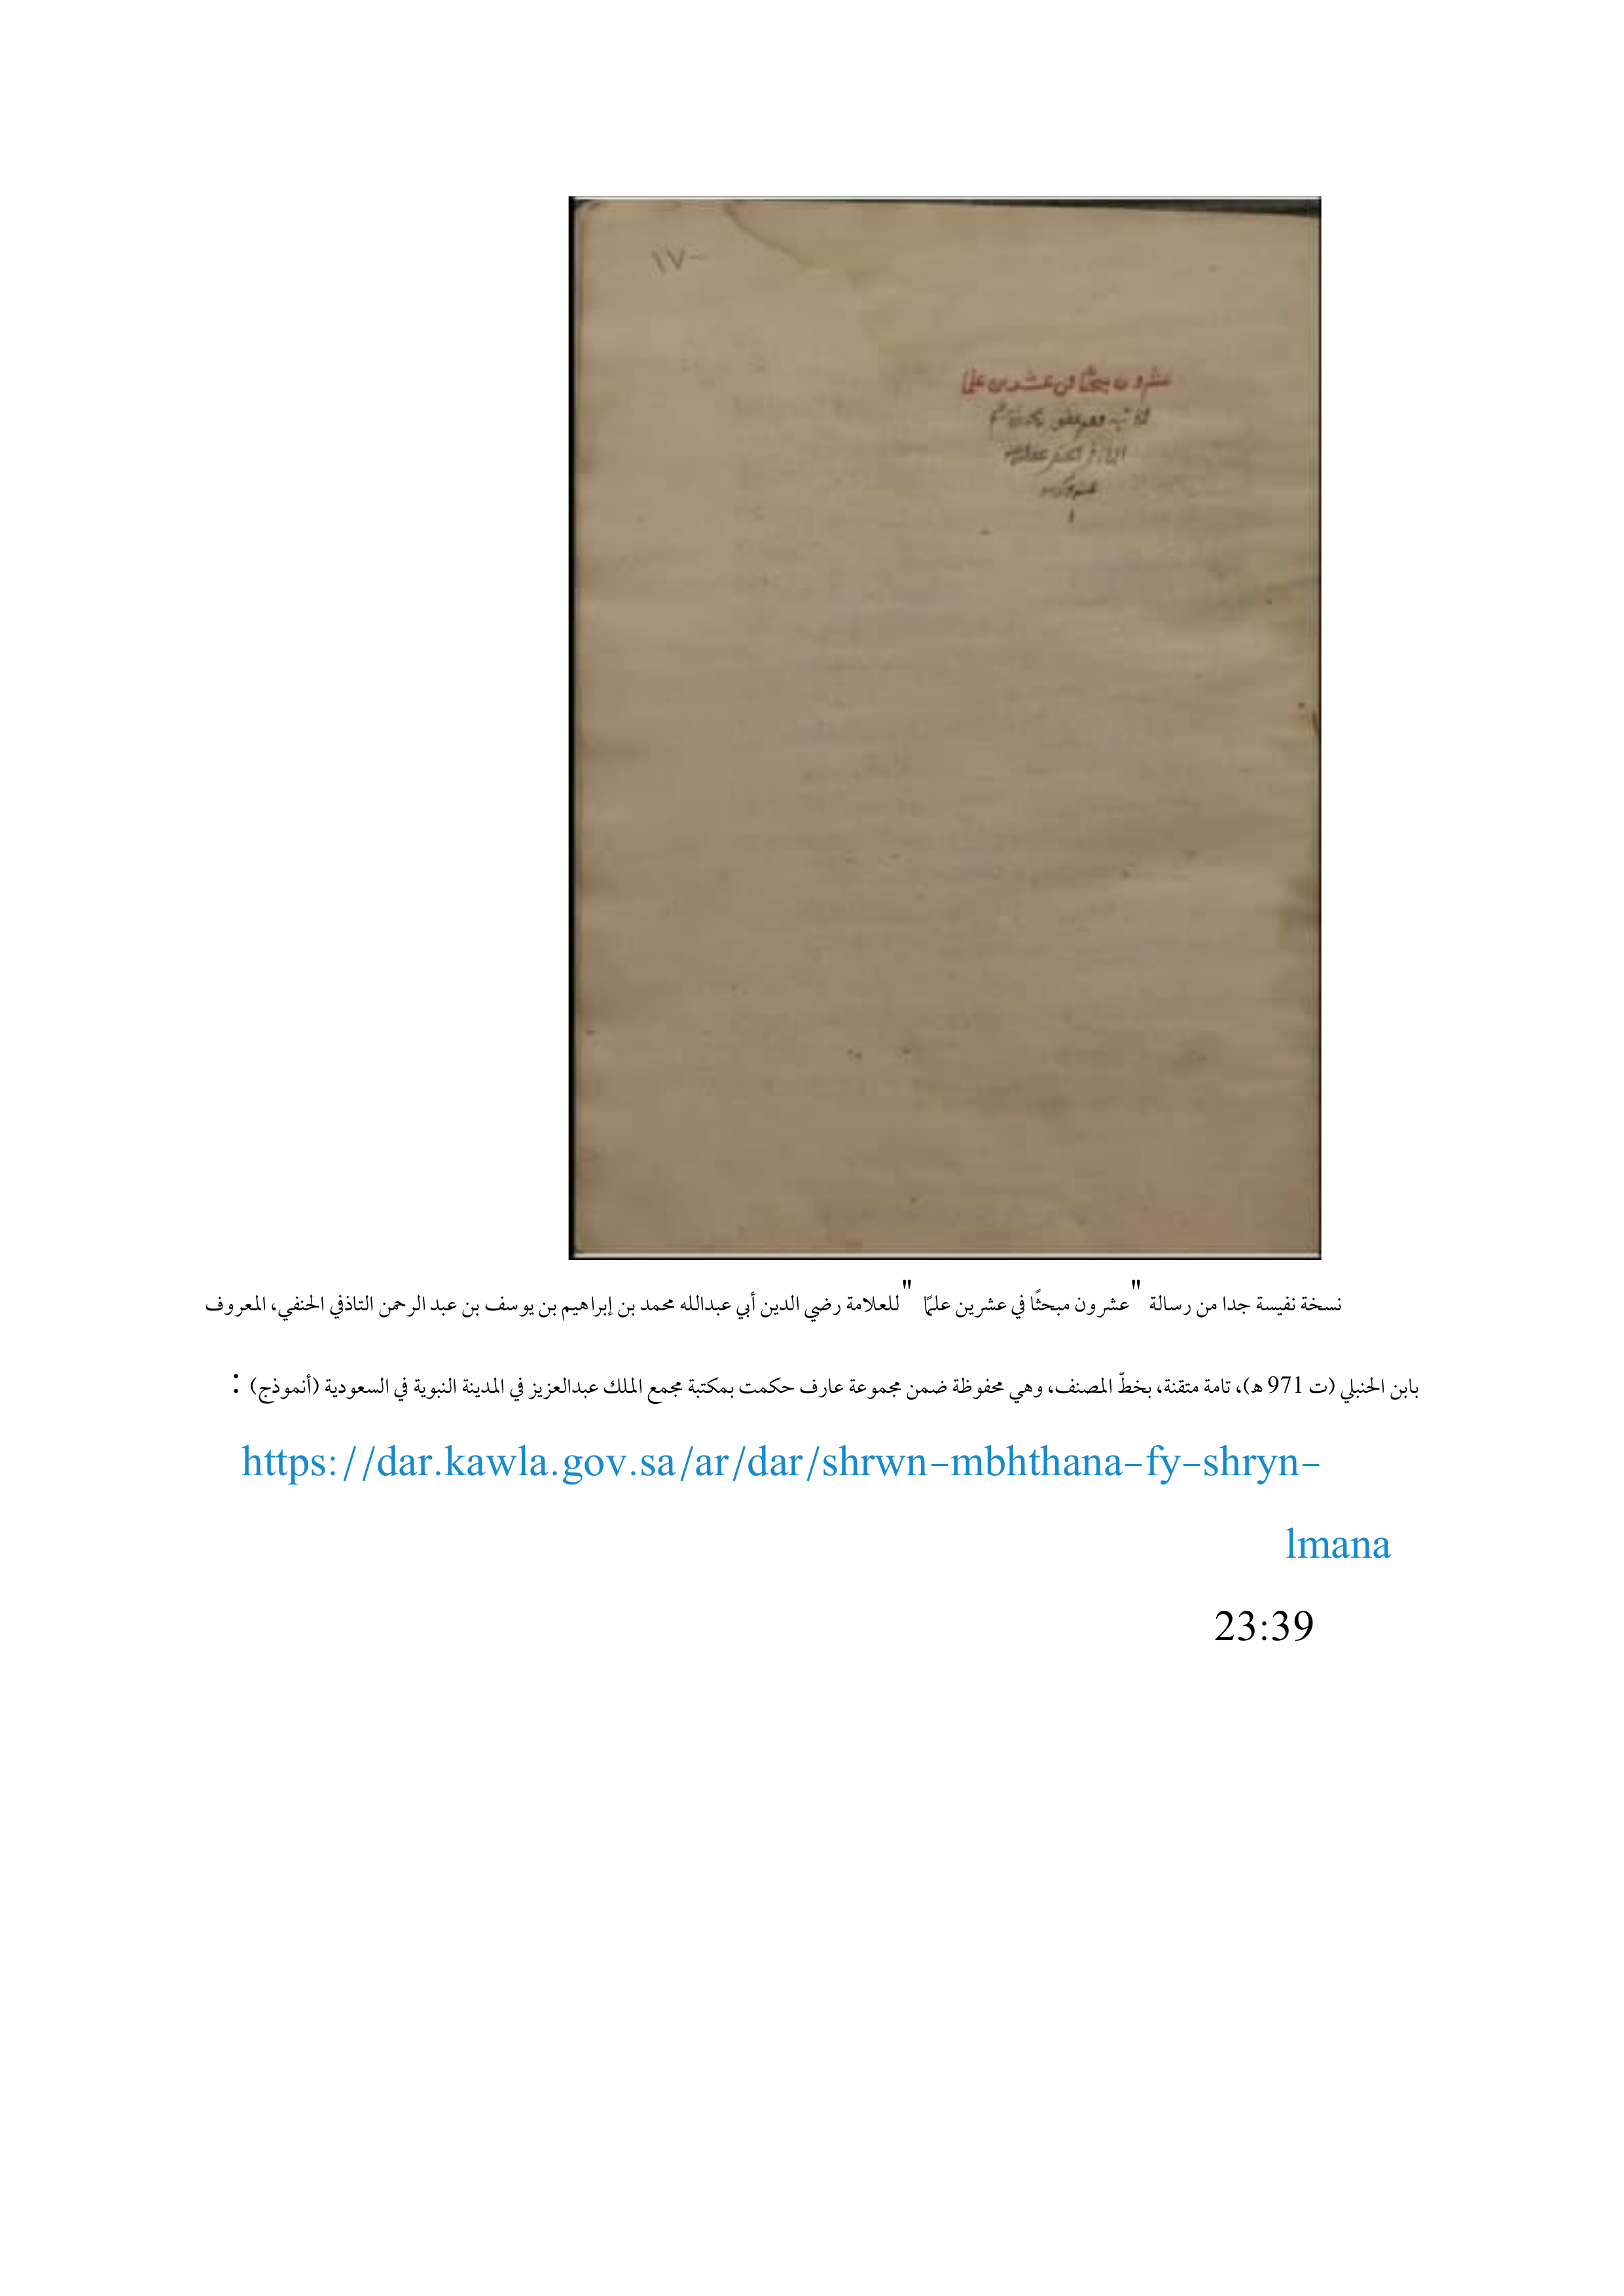 ١٧-
عشرون مبحثا في عشرين علما
نسخة نفيسة جدا من رسالة "عشرون مبحثًا في عشرين علمًا " للعلامة رضي الدين أبي عبدالله محمد بن إبراهيم بن يوسف بن عبد الرحمن التاذفي الحنفي، المعروف
بابن الحنبلي (ت 971 ه)، تامة متقنة، بخطّ المصنف، وهي محفوظة ضمن مجموعة عارف حكمت بمكتبة مجمع الملك عبدالعزيز في المدينة النبوية في السعودية (أنموذج) :
https://dar.kawla.gov.sa/ar/dar/shrwn-mbhthana-fy-shryn-
lmana
23:39